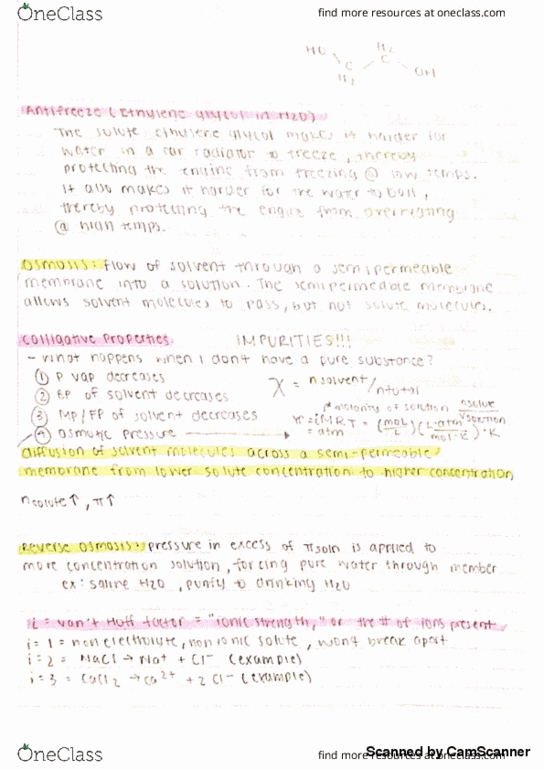 OneClass
find more resources at oneclass.com
HO
H2
C
C
H2
OH
Antifreeze (Ethylene glycol in H2O)
The solute ethylene glycol makes it harder for
water in a car radiator to freeze, thereby
protecting the engine from freezing @ low temps.
It also makes it harder for the water to boil,
thereby protecting the engine from overheating
@ high temps.
Osmosis: flow of solvent through a semipermeable
membrane into a solution. The semipermeable membrane
allows solvent molecules to pass, but not solute molecules.
Colligative Properties IMPURITIES!!!
- What happens when I don't have a pure substance?
① P vap decreases
χ = nsolvent/ntotal
② BP of solvent decreases
③ MP/FP of solvent decreases
molarity of solution nsolute/Vsolution
④ osmotic pressure → π = iMRT = (mol/L)(L·atm/mol·K)·K
= atm
diffusion of solvent molecules across a semi-permeable
membrane from lower solute concentration to higher concentration
nsolute↑, π↑
Reverse Osmosis: pressure in excess of πsoln is applied to
more concentration solution, forcing pure water through member
ex: saline H2O, purify to drinking H2O
i = van't Hoff factor = "ionic strength," or the # of ions present
i = 1 = nonelectrolyte, nonionic solute, won't break apart
i = 2 = NaCl → Na+ + Cl- (example)
i = 3 = CaCl2 → Ca2+ + 2Cl- (example)
OneClass
find more resources at oneclass.com
Scanned by CamScanner